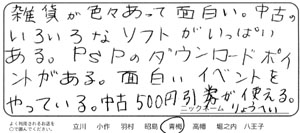 雑貨が色々あって面白い。中古の
いろいろなソフトがいっぱい
ある。PSPのダウンロードポイ
ントがある。面白いイベントを
やっている。中古500円引券が使える。
ニックネーム りょうつい
よく利用されるお店を
○で囲んでください。
立川 小作 羽村 昭島 青梅 高幡 堀之内 八王子